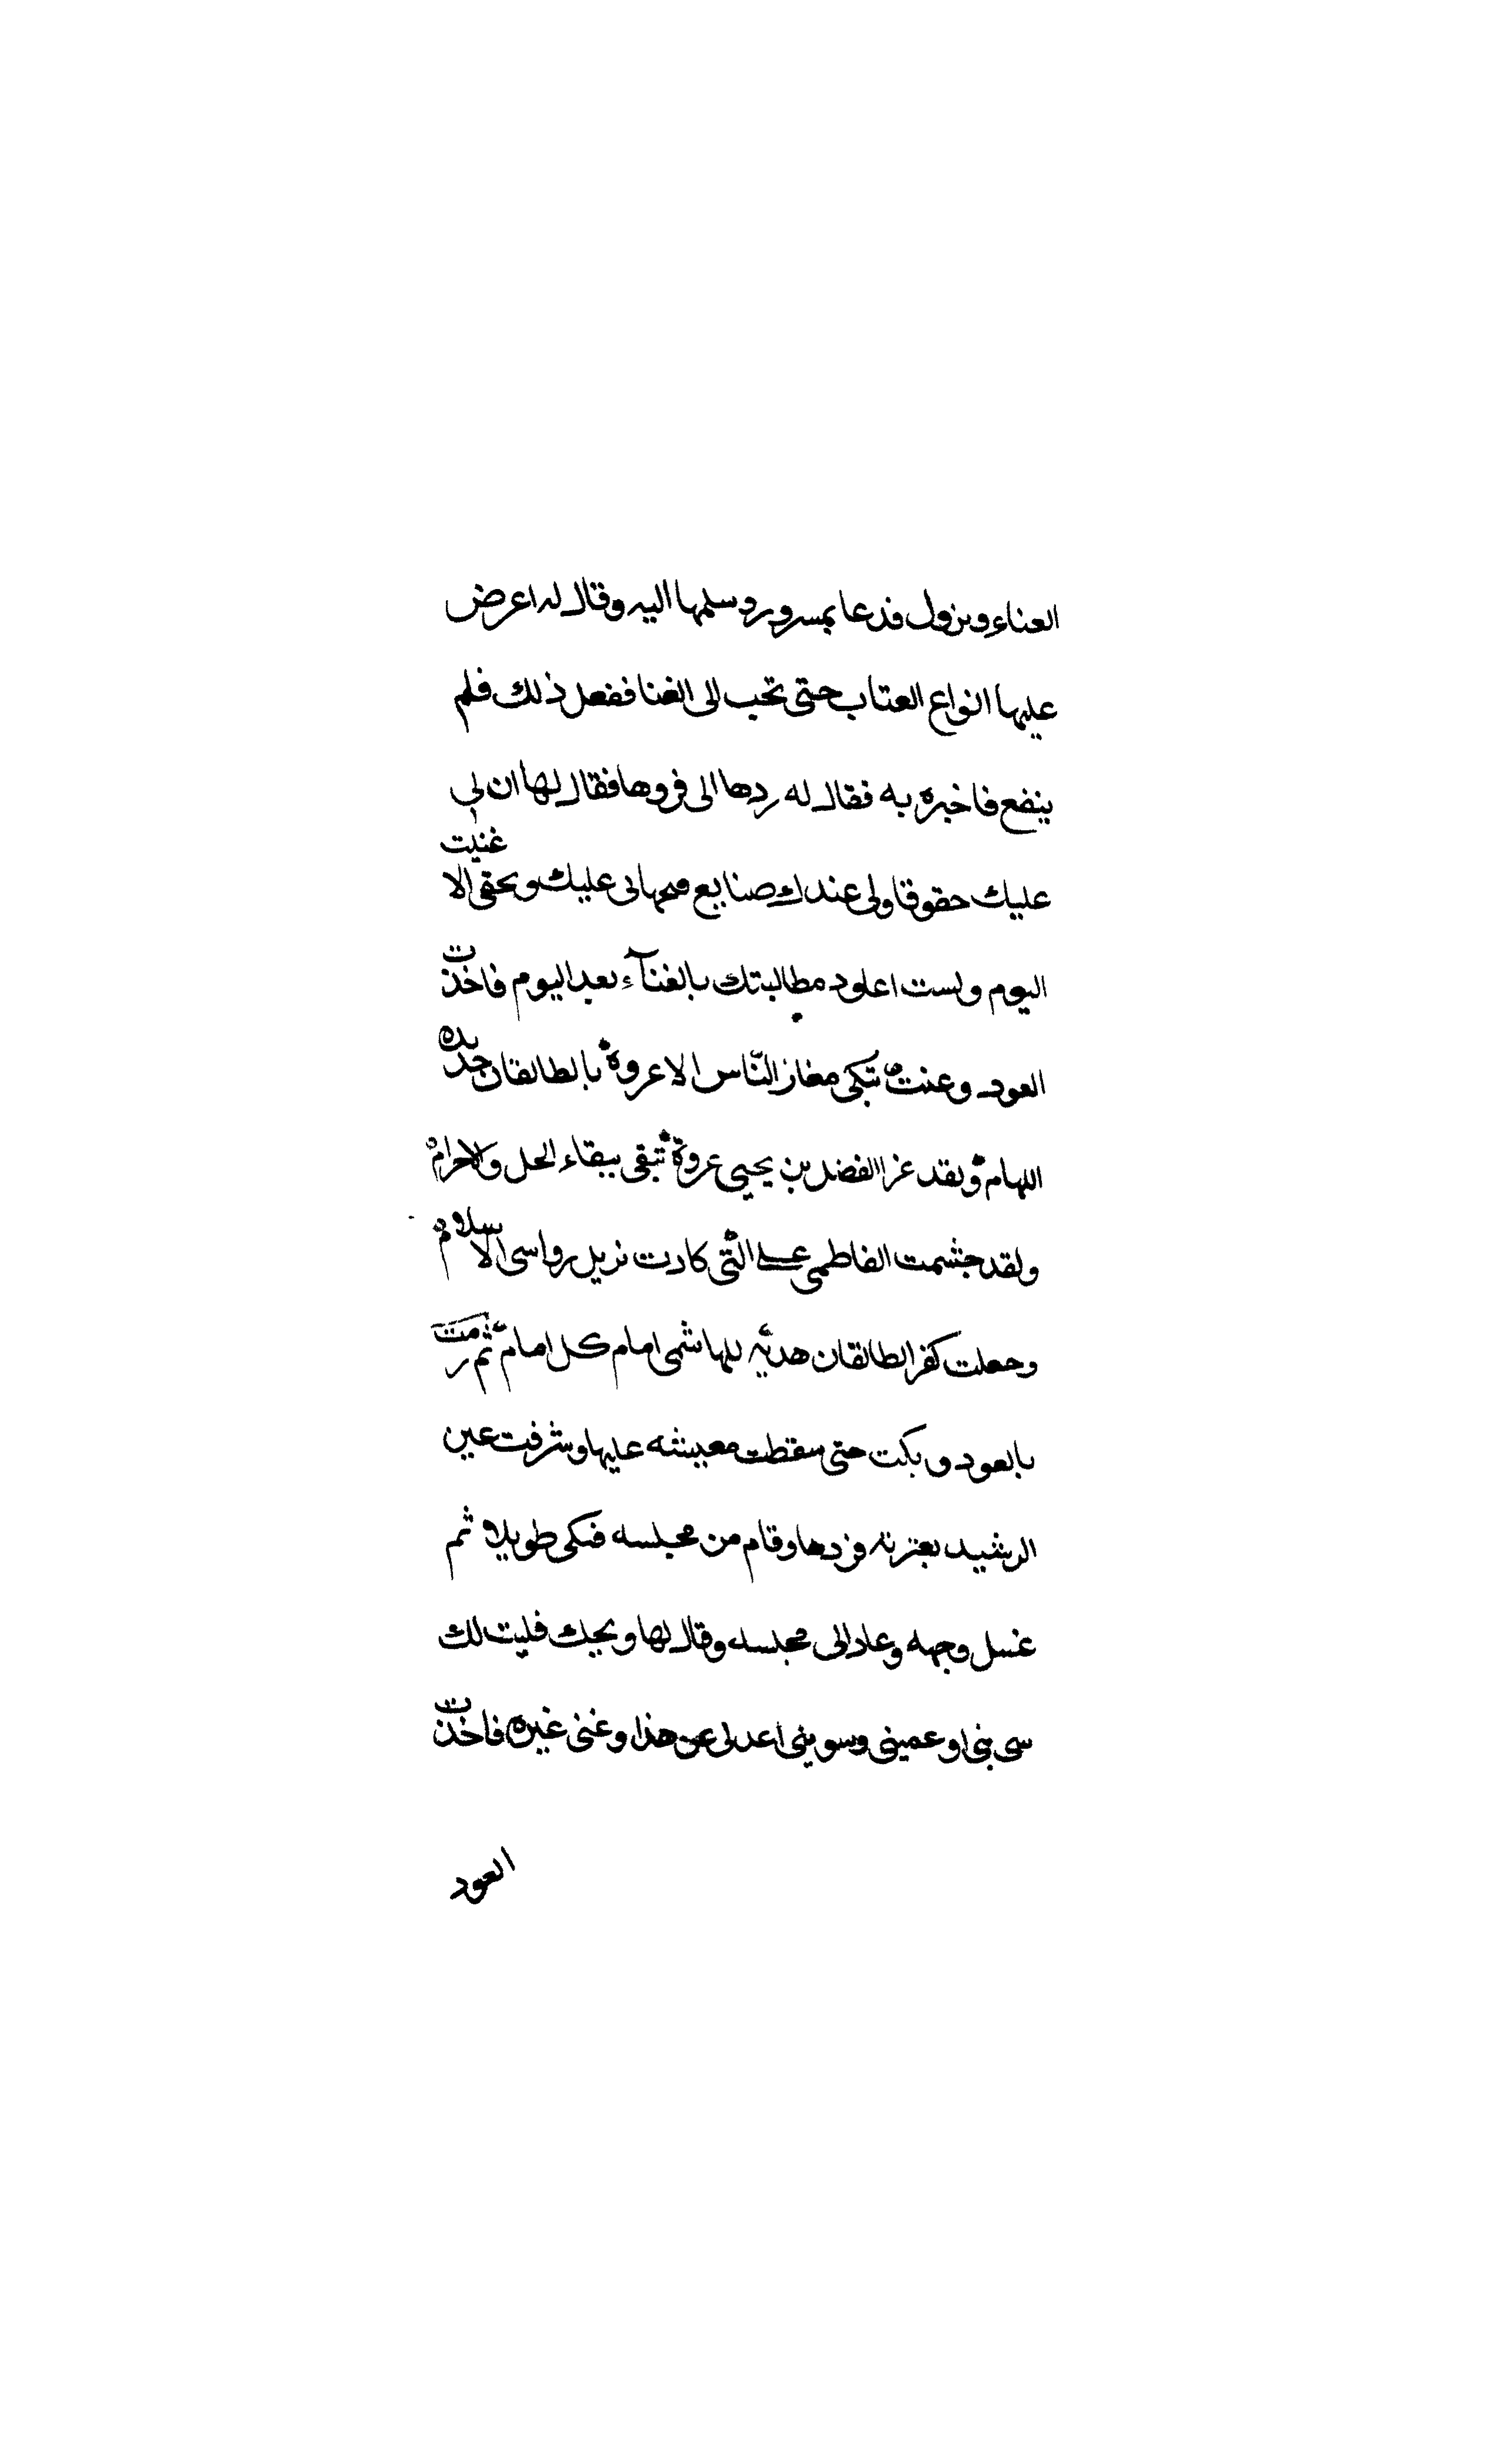 العناء وبزول فدعا بمسرورد وسلمها اليه وقال له اعرض
عليها انواع العتاب حتى تحب الى الغنا ففعل ذلك فلم
ينفع فاخبره به فقال له ردها الى فروها فقال لها ان لي
عليك حقوقا ولى عندك صنايع بى عليك وبحقى الا غنيت
اليوم ولست اعاود مطالبتك بالغنآء بعد اليوم فاخذت
العود وعنت تبكى مغاز النّاس الا عروة بالطالقان جديده
اللهام ولقد غزا الفضل بن يحيى عروة تبقى ببقاء الحل والاحرام
ولقد جشمت الفاطمى على التى كادت نزيل رواسى الاسلام
وجعلت كفر الطالقان هديّه للهاشمى امام كل امام ثم رمت
بالعود وبكت حتى سقطت معيشه عليها وشرفت عين
الرشيد بعبرته فردها وقام من مجلسه فبكى طويلا ثم
غسل وجهه وعاد الى مجلسه وقال لها ويحك فليت لك
سى بنى او عمينى وسوينى اعدلى عن هذا وغنى غيره فاخذت
العود